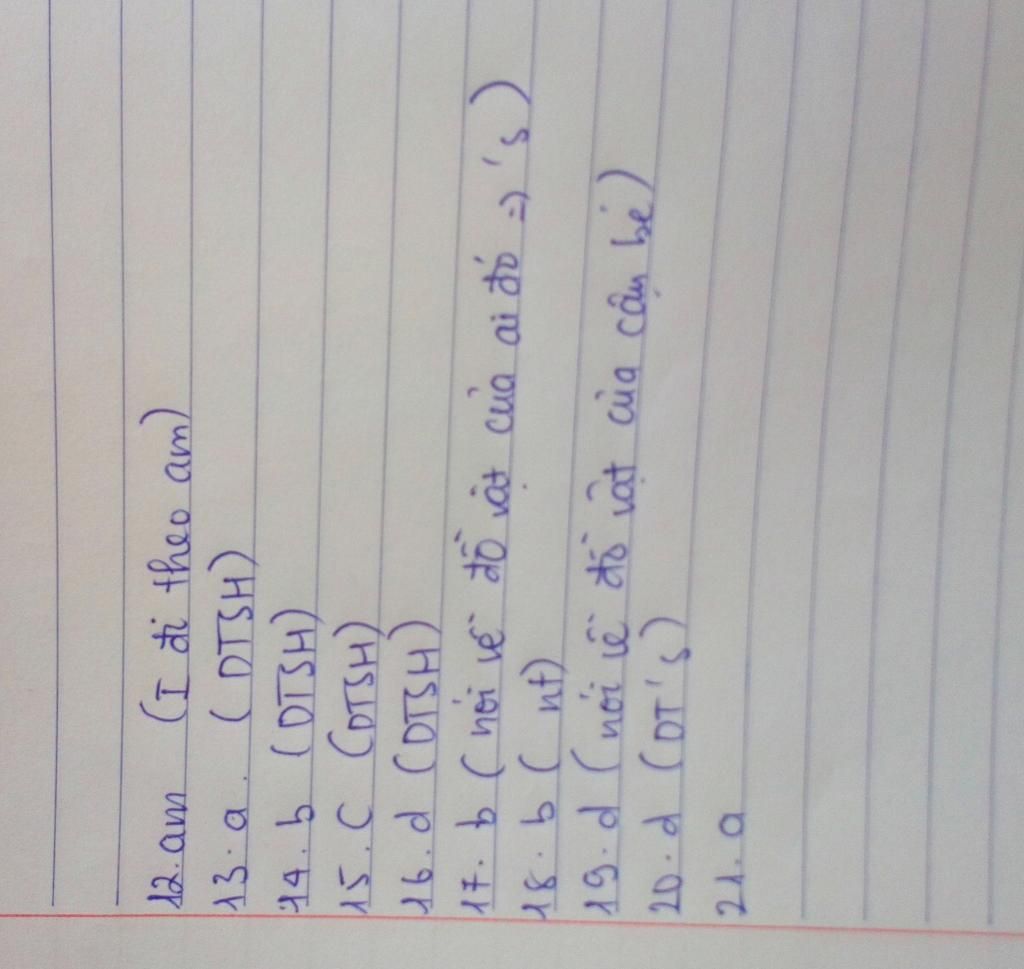 12. am (I đi theo am)
13. a. (DTSH)
14. b (DTSH)
15. C (DTSH)
16. d (DTSH)
17. b (nói về đồ vật của ai đó => 's)
18. b ( nt)
19. d (nói về đồ vật của cậu bé)
20. d (DT's)
21. a